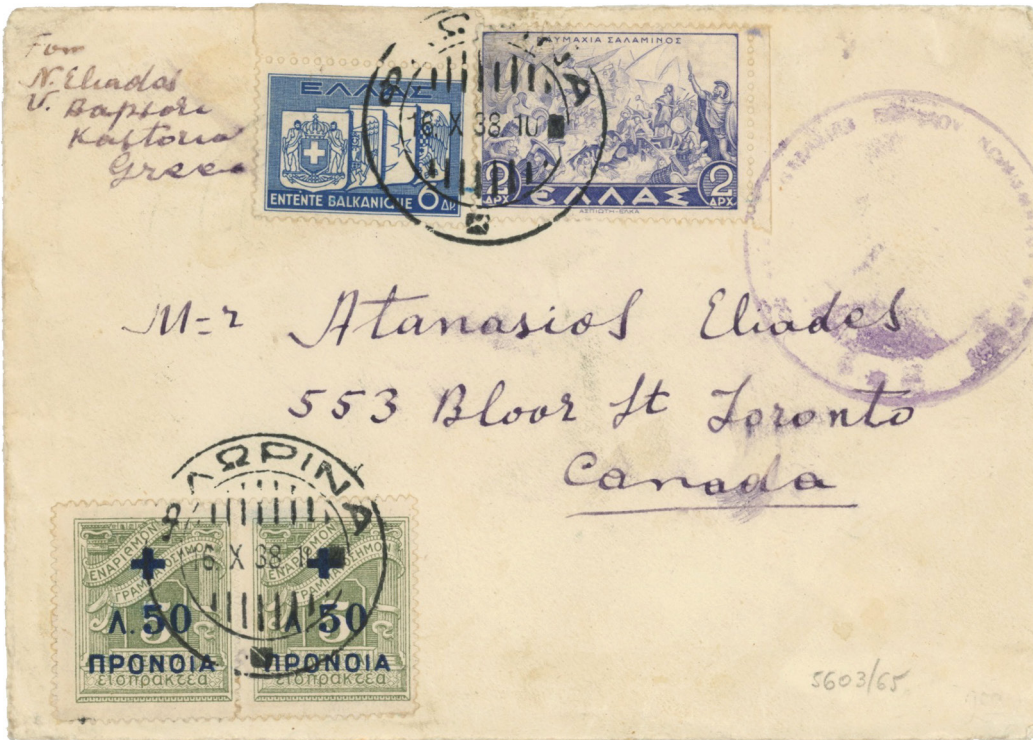 From
N. Eliades
V. Bapsori
Kastoria
Greece
ΕΛΛΑΣ
ENTENTE BALKANIQUE 6 ΔΡ.
ΝΑΥΜΑΧΙΑ ΣΑΛΑΜΙΝΟΣ
2 ΕΛΛΑΣ 2
ΔΡΧ ΔΡΧ
ΑΣΠΙΩΤΗ-ΕΛΚΑ
16 X 38 10
M=r Atanasios Eliades
553 Bloor St Toronto
Canada
ΦΛΩΡΙΝΑ
16 X 38
ΕΝΑΡΙΘΜΟΝ
ΓΡΑΜΜΑΤΟΣΗΜΟΝ
Λ. 50
ΠΡΟΝΟΙΑ
εισπρακτέα
ΕΝΑΡΙΘΜΟΝ
ΓΡΑΜΜΑΤΟΣΗΜΟΝ
Λ 50
ΠΡΟΝΟΙΑ
εισπρακτέα
5603/65